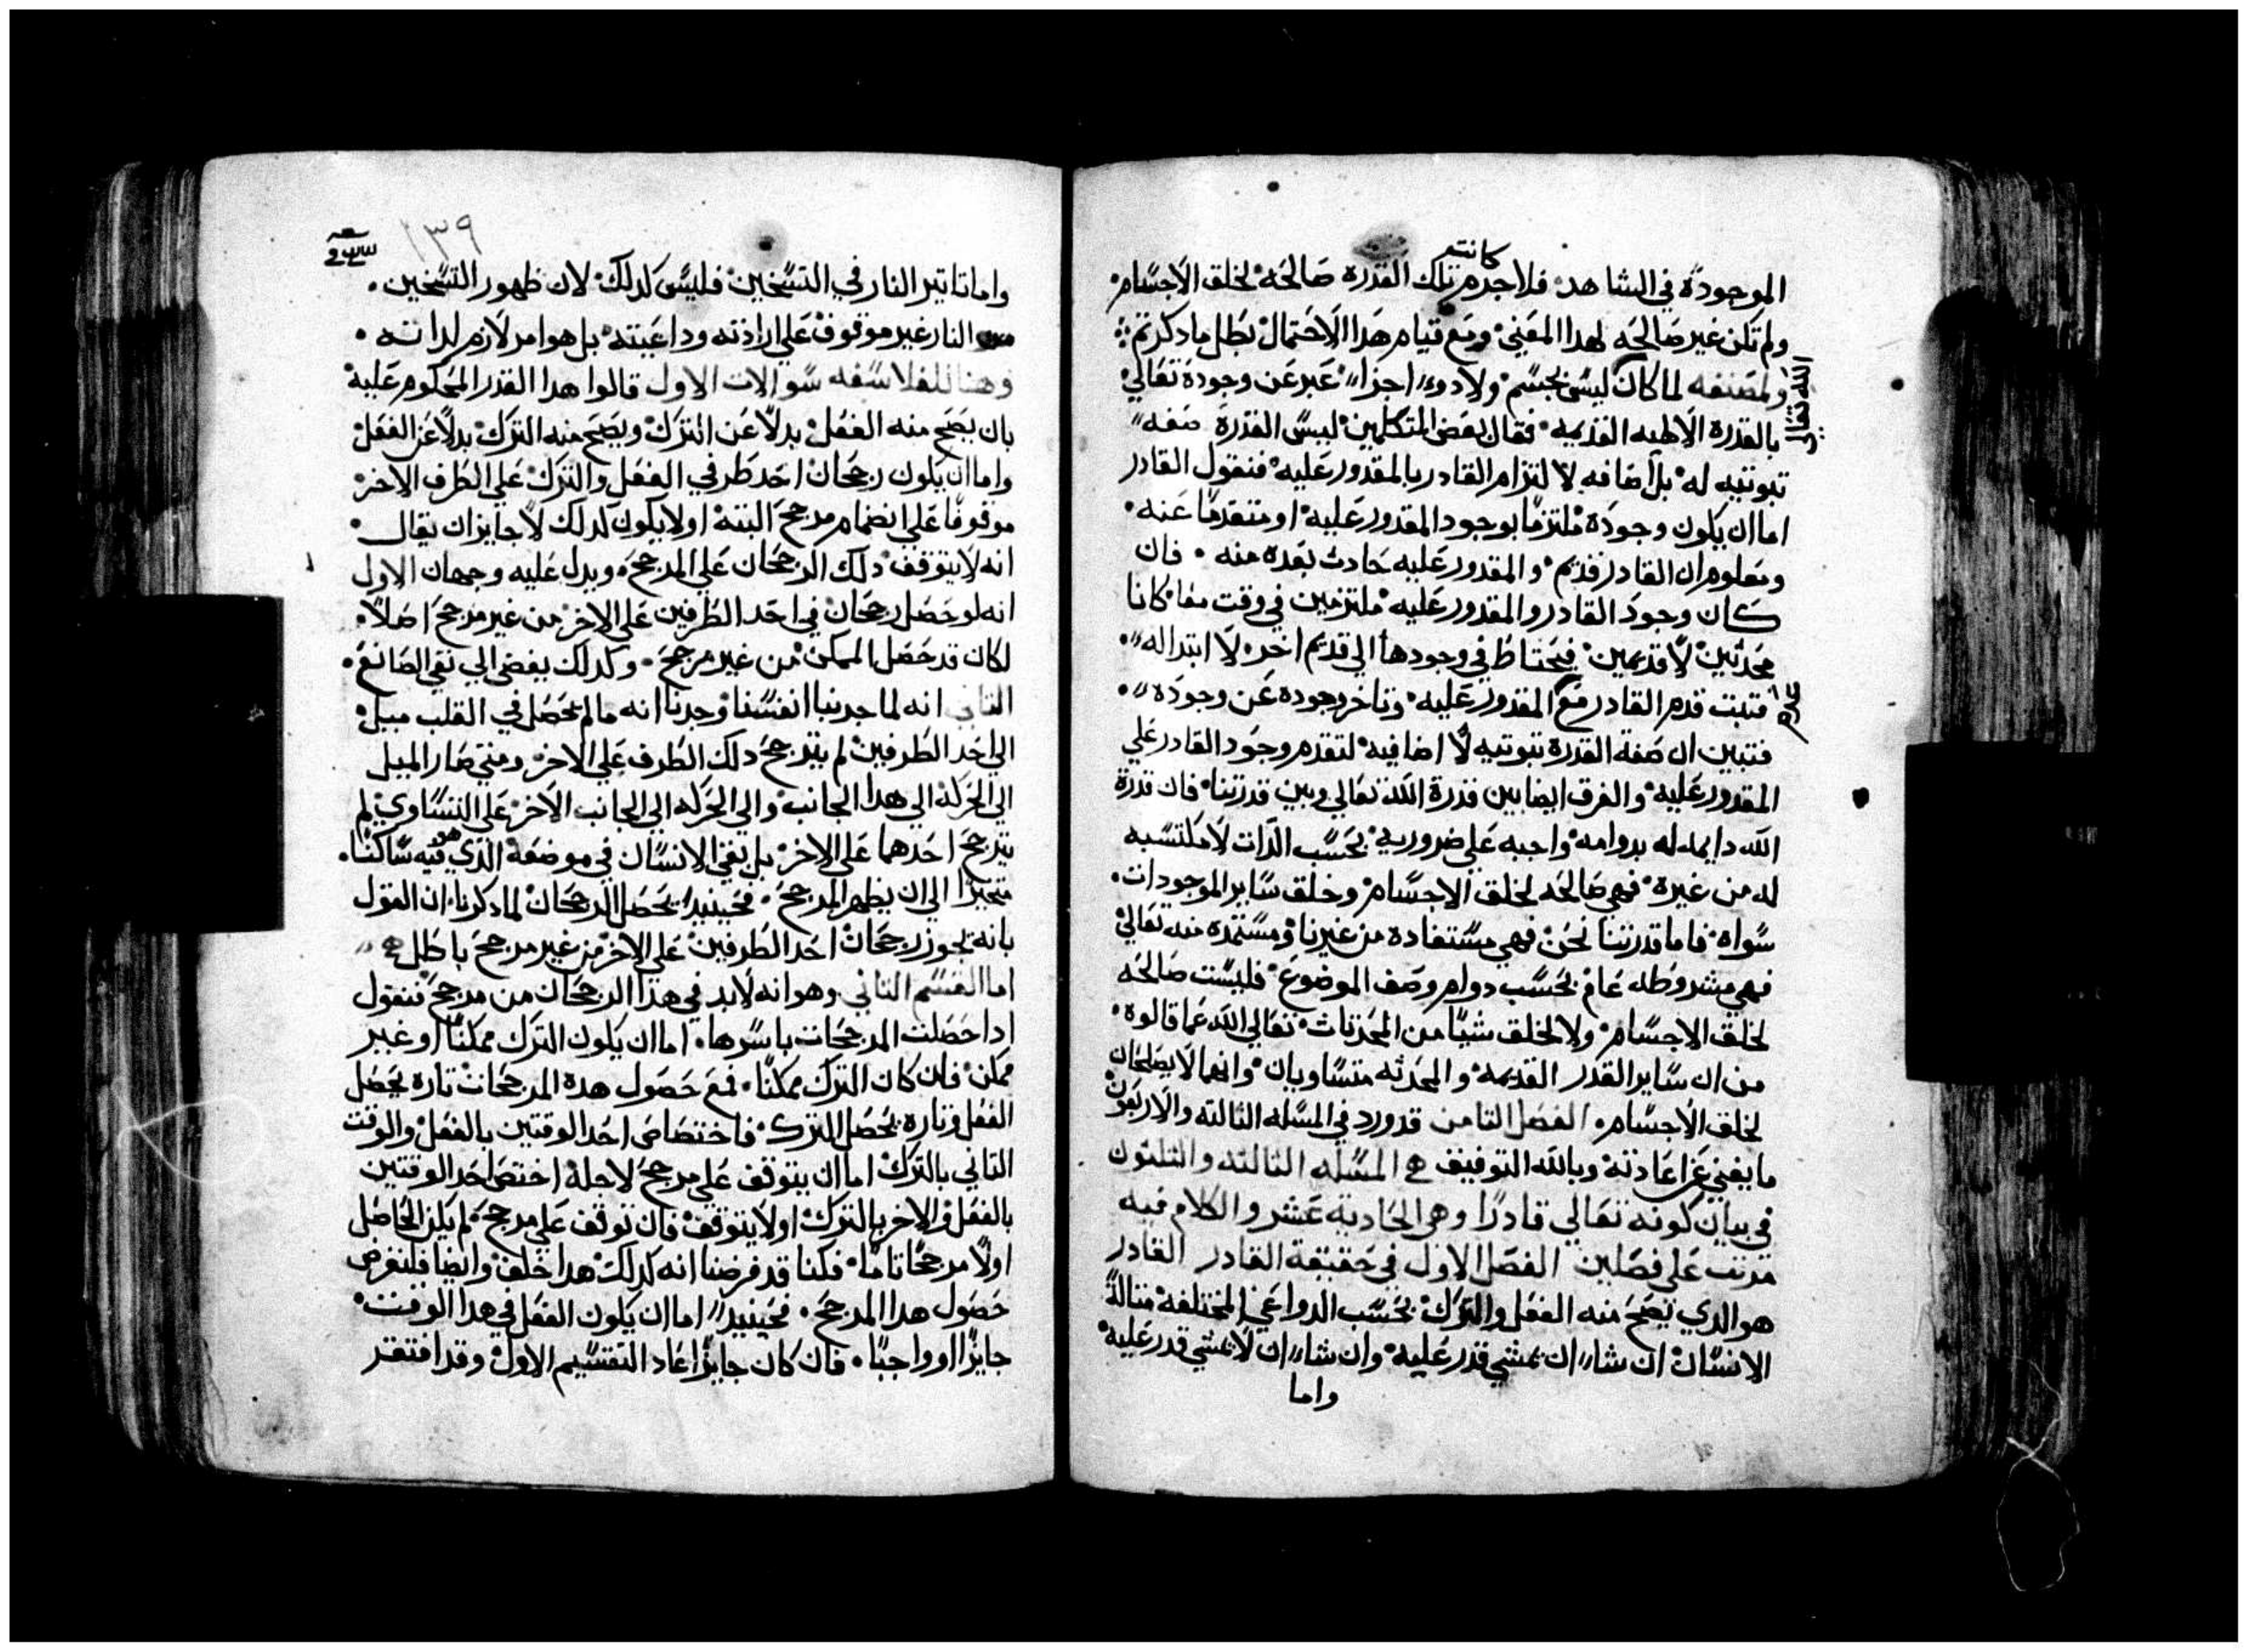 كانت
الموجودة في الشاهد فلا جرم تلك القدره صالحه لخلق الاجسام
ولم تكن غير صالحه لهدا المعني ومع قيام هدا الاحتمال بطل ما دكرتم
ولمصنفه لما كان ليس بجسم ولا دو اجزا عبر عن وجوده تعالي
الله تعالى
بالقدرة الالهيه القديمه فقال بعض المتكلمين ليس القدرة صفه
تبوتيه له بل اضافه لالتزام القادر بالمقدور عليه فنقول القادر
اما ان يكون وجوده ملتزما بوجود المقدور عليه او متقدما عنه
ومعلوم ان القادر قديم والمقدور عليه حادت بعده منه فان
كان وجود القادر والمقدور عليه ملتزمين في وقت معا كانا
محدثين لا قديمين فيحتاط في وجودها الي قديم اخر لا ابتدا له
فتبت قدم القادر مع المقدور عليه وتاخر وجوده عن وجوده
فتبين ان صفة القدرة تبوتيه لا اضافيه لتقدم وجود القادر علي
المقدور عليه والفرق ايضا بين قدرة الله تعالي وبين قدرتنا فان قدرة
الله دايمه له بدوامه واجبه علي ضروريه بحسب الدات لا مكتسبه
له من غيره فهي صالحه لخلق الاجسام وخلق ساير الموجودات
سواه فاما قدرتنا نحن فهي مستفادة من غيرنا ومستمده منه تعالي
فهي مشروطه عام بحسب دوام وصف الموضوع فليست صالحه
لخلق الاجسام ولا لخلق شيا من المحدتات تعالي الله عما قالوه
من ان ساير القدر القديمه والمحدثه متساويان وانهما لا يصلحان
لخلق الاجسام الفصل التامن قد ورد في المسله التالته والاربعون
ما يغني عن اعادته وبالله التوفيق المسله التالته والتلتون
في بيان كونه تعالي قادرا وهي الحادية عشر والكلام فيه
مرتب علي فصلين الفصل الاول في حقيقة القادر القادر
هو الدي يصح منه الفعل والترك بحسب الدواعي المختلفه متاله
الانسان ان شا ان يمشي قدر عليه وان شا ان لا يمشي قدر عليه
واما
١٣٩
واما تاتير النار في التسخين فليس كدلك لان ظهور التسخين
من النار غير موقوف علي ارادته وداعيته بل هو امر لازم لداته
وهنا للفلاسفه سوالات الاول قالوا هدا القدر المحكوم عليه
بان يصح منه الفعل بدلا عن الترك ويصح منه الترك بدلا عن الفعل
واما ان يكون رجحان احد طرفي الفعل والترك علي الطرف الاخر
موقوفا علي انضمام مرجح البته او لا يكون كدلك لا جايز ان يقال
انه لا يتوقف دلك الرجحان علي المرجح ويدل عليه وجهان الاول
انه لو حصل رجحان في احد الطرفين علي الاخر من غير مرجح اصلا
لكان قد حصل الممكن من غير مرجح وكدلك يفضي الي نفي الصانع
التاني انه لما جربنا انفسنا وجدنا انه ما لم يحصل في القلب ميل
الي احد الطرفين لم يترجح دلك الطرف علي الاخر ومتي صار الميل
الي الحركه الي هدا الجانب والي الحركه الي الجانب الاخر علي التساوي لم
يترجح احدهما علي الاخر بل يبقي الانسان في موضعه الدي هو فيه ساكنا
متحيرا الي ان يظهر المرجح فحينيد يحصل الرجحان لما دكرنا ان القول
بانه يجوز رجحان احد الطرفين علي الاخر من غير مرجح باطل
اما القسم التاني وهو انه لا بد في هدا الرجحان من مرجح فنقول
ادا حصلت المرجحات باسرها اما ان يكون الترك ممكنا او غير
ممكن فان كان الترك ممكنا فمع حصول هده المرجحات تارة يحصل
الفعل وتارة يحصل الترك فاختصاص احد الوقتين بالفعل والوقت
التاني بالترك اما ان يتوقف علي مرجح لاجله اختص احد الوقتين
بالفعل والاخر بالترك او لا يتوقف فان توقف علي مرجح لم يكن الحاصل
اولا مرجحا تاما فكنا قد فرضنا انه كدلك هدا خلف وايضا فلنفرض
حصول هدا المرجح فحينيد اما ان يكون الفعل في هدا الوقت
جايزا او واجبا فان كان جايزا عاد التقسيم الاول وقد افتقر